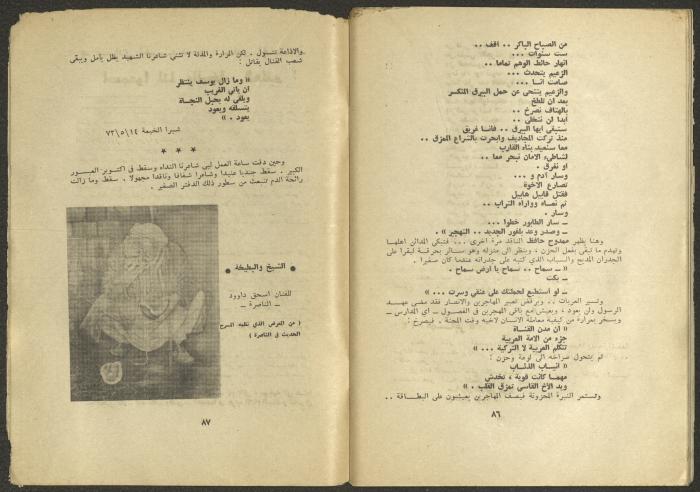 من الصباح الباكر .. اقف ..
ست سنوات ...
انهار حائط الوهم تماما ..
الزعيم يتحدث ...
صامت انا ...
والزعيم يتنحى عن حمل البيرق المنكسر
بعد ان تلطخ
بالهتاف نصرخ ..
أبدا لن تتخلى ..
ستبقى ايها البيرق .. فانا غريق
منذ تركت المجاديف وابحرت بالشراع الممزق ..
معا سنعيد بناء القارب
لشاطىء الامان نبحر معا ..
او نغرق .
وسار آدم و ...
تصارع الاخوة
فقتل قابيل هابيل
ثم نعاه وواراه التراب ..
وسار .
ــ سار الطابور خطوا ...
ــ وصدر وعد بلفور الجديد .. التهجير » .
وهنا يظهر ممدوح حافظ الناقد مرة اخرى ... فتبكي المدائن اهلها
وتهدم ما تبقى بفعل الحزن ، وينظر الى منزله وهو سائر بحرقة ليقرأ على
الجدران المديح والسباب الذي كتبه على جدرانه عندما كان صغيرا .
« ــ سماح .. سماح يا أرض سماح .
ــ بكت
ــ لو أستطيع لحملتك على عنقي وسرت ... »
وتسير العربات .. ويرفض تعبير المهاجرين والانصار فقد مضى عهد
الرسول ولن يعود ، ويعيش مع باقي المهجرين في الفصول ــ اي المدارس ــ
ويسخر بمرارة من كيفية معاملة الانسان لاخيه وقت المحنة . فيصرخ :
« ان مدن القناة
جزء من الامة العربية
تتكلم العربية لا التركية ... »
ثم يتحول صراخه الى لومة وحزن :
« أنياب الذئاب
مهما كانت قوية ، تخدش
ويد الأخ القاسي تمزق القلب . »
وتستمر النبرة المحزونة فيصف المهاجرين يعيشون على البطاقة ..
٨٦
والاذاعة تتسول . لكن المرارة والمذلة لا تثني شاعرنا الشهيد يظل يأمل ويبقى
شعب القنال يقاتل :
« وما زال يوسف ينتظر
ان يأتي الغريب
ويلقي له بحبل النجاة
يتسلقه ويعود
يعود . »
شبرا الخيمة ٧٣/٥/١٤
★ ★ ★
وحين دقت ساعة العمل لبى شاعرنا النداء وسقط في اكتوبر العبور
الكبير . سقط جنديا عنيدا وشاعرا شفافا وناقدا مجهولا . سقط وما زالت
رائحة الدم تنبعث من سطور ذلك الدفتر الصغير .
● الشيخ والبطيخة ●
للفنان اسحق داوود
ــ الناصرة ــ
( من المعرض الذي نظمه المسرح
الحديث في الناصرة )
٨٧